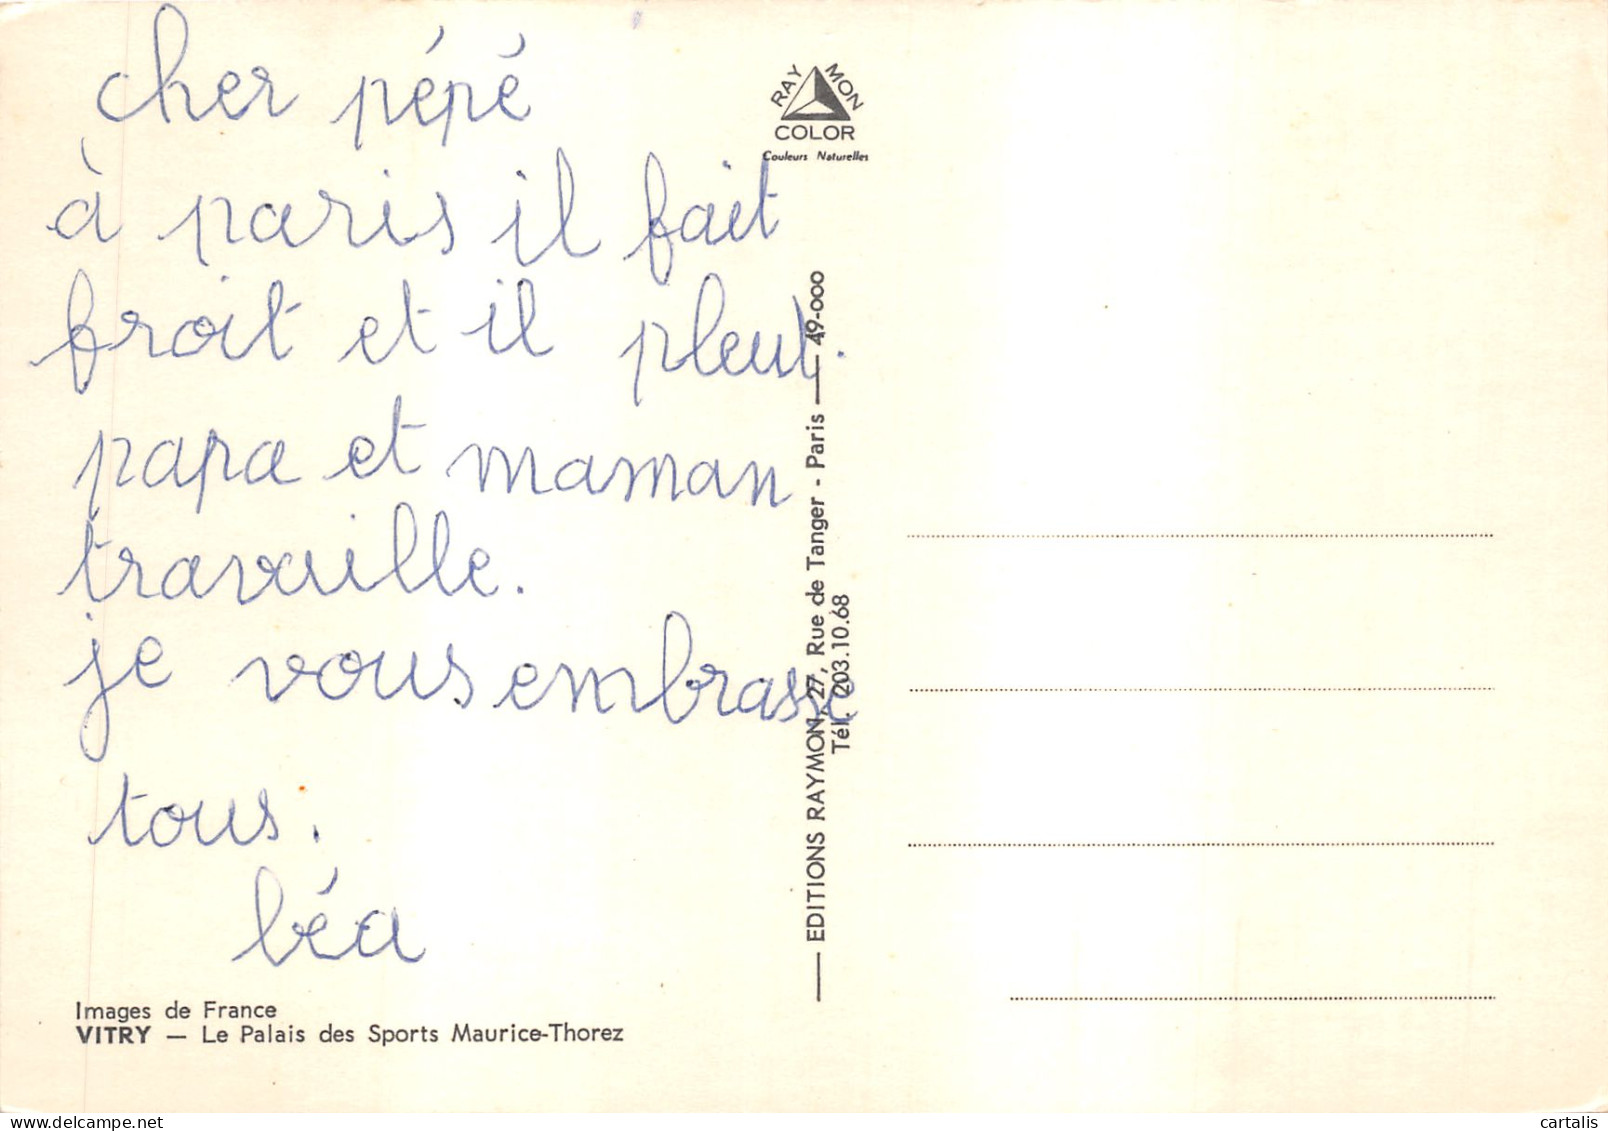 cher pépé
à paris il fait
froit et il pleut.
papa et maman
travaille.
je vous embrasse
tous.
béa
Images de France
VITRY — Le Palais des Sports Maurice-Thorez
RAYMON
COLOR
Couleurs Naturelles
EDITIONS RAYMON, 27, Rue de Tanger - Paris — 49-000
Tél. 203.10.68
cartalis